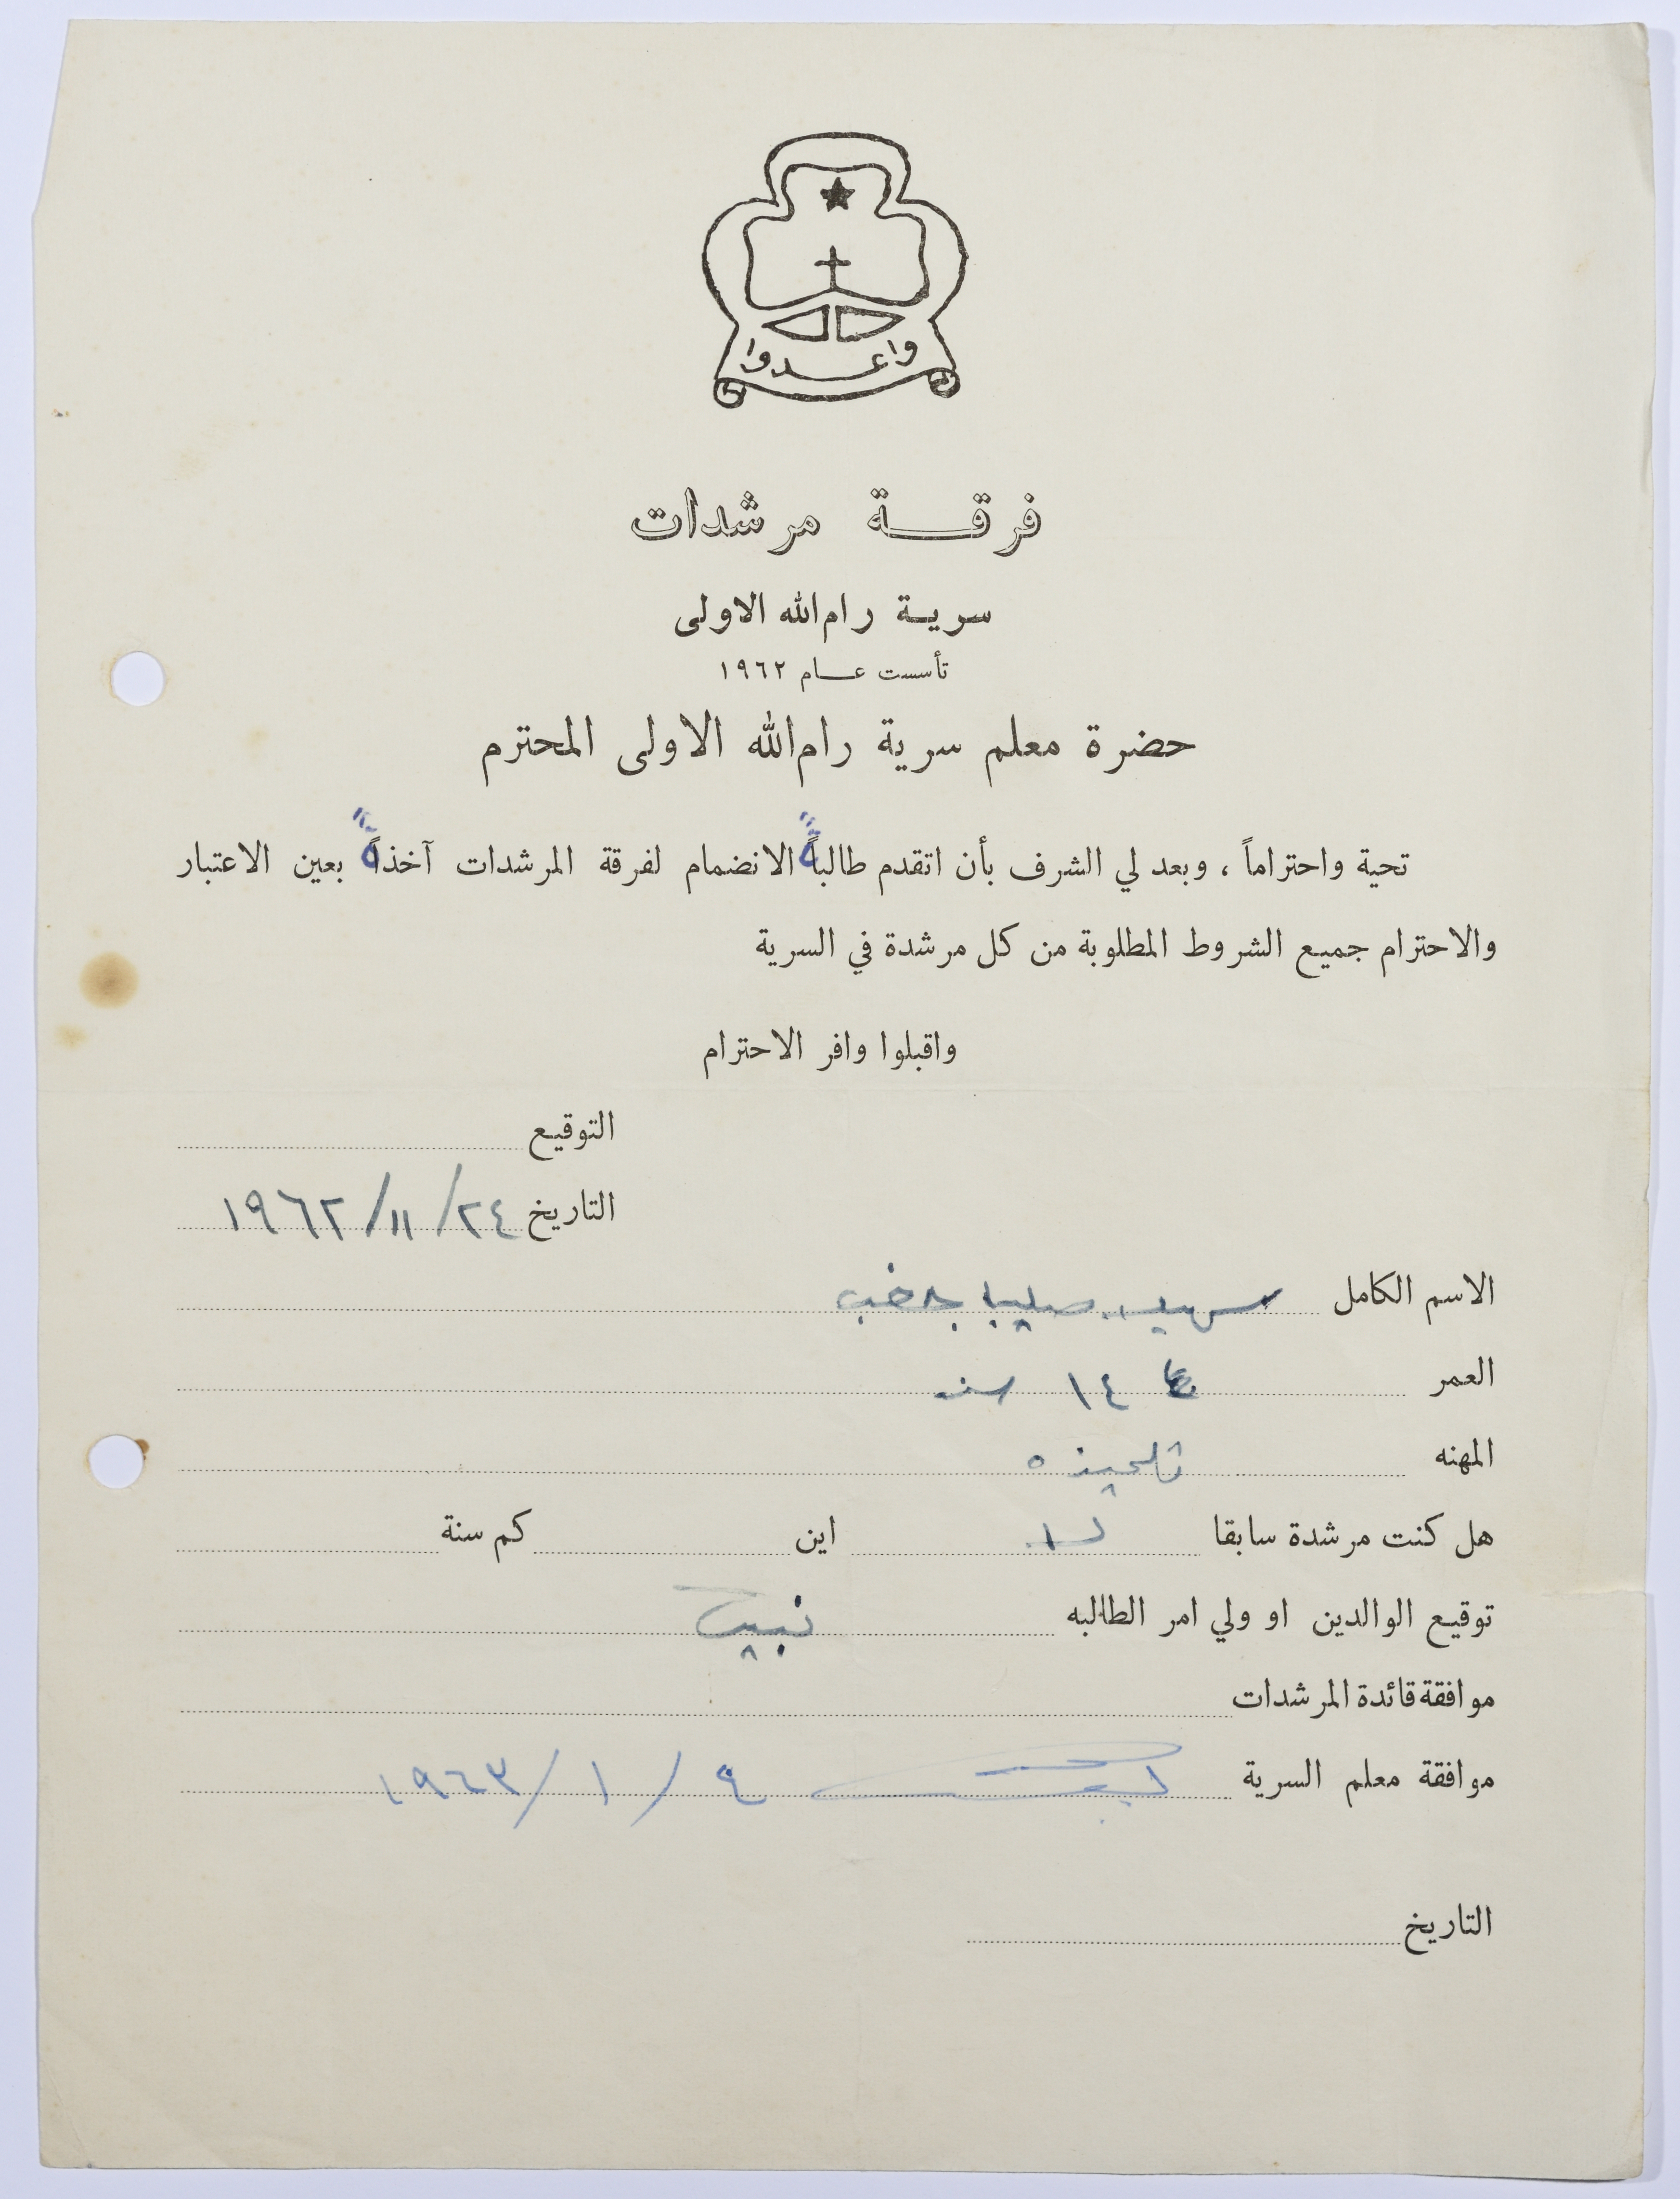 واعدوا
فرقة مرشدات
سرية رام الله الاولى
تأسست عام ١٩٦٢
حضرة معلم سرية رام الله الاولى المحترم
تحية واحتراماً ، وبعد لي الشرف بأن اتقدم طالبةً الانضمام لفرقة المرشدات آخذةً بعين الاعتبار
والاحترام جميع الشروط المطلوبة من كل مرشدة في السرية
واقبلوا وافر الاحترام
التوقيع
التاريخ ٢٤/١١/١٩٦٢
الاسم الكامل صليبا
العمر ١٤ سنه
المهنه تلميذه
هل كنت مرشدة سابقا لا اين كم سنة
توقيع الوالدين او ولي امر الطالبه
موافقة قائدة المرشدات
موافقة معلم السرية ٩/١/١٩٦٣
التاريخ